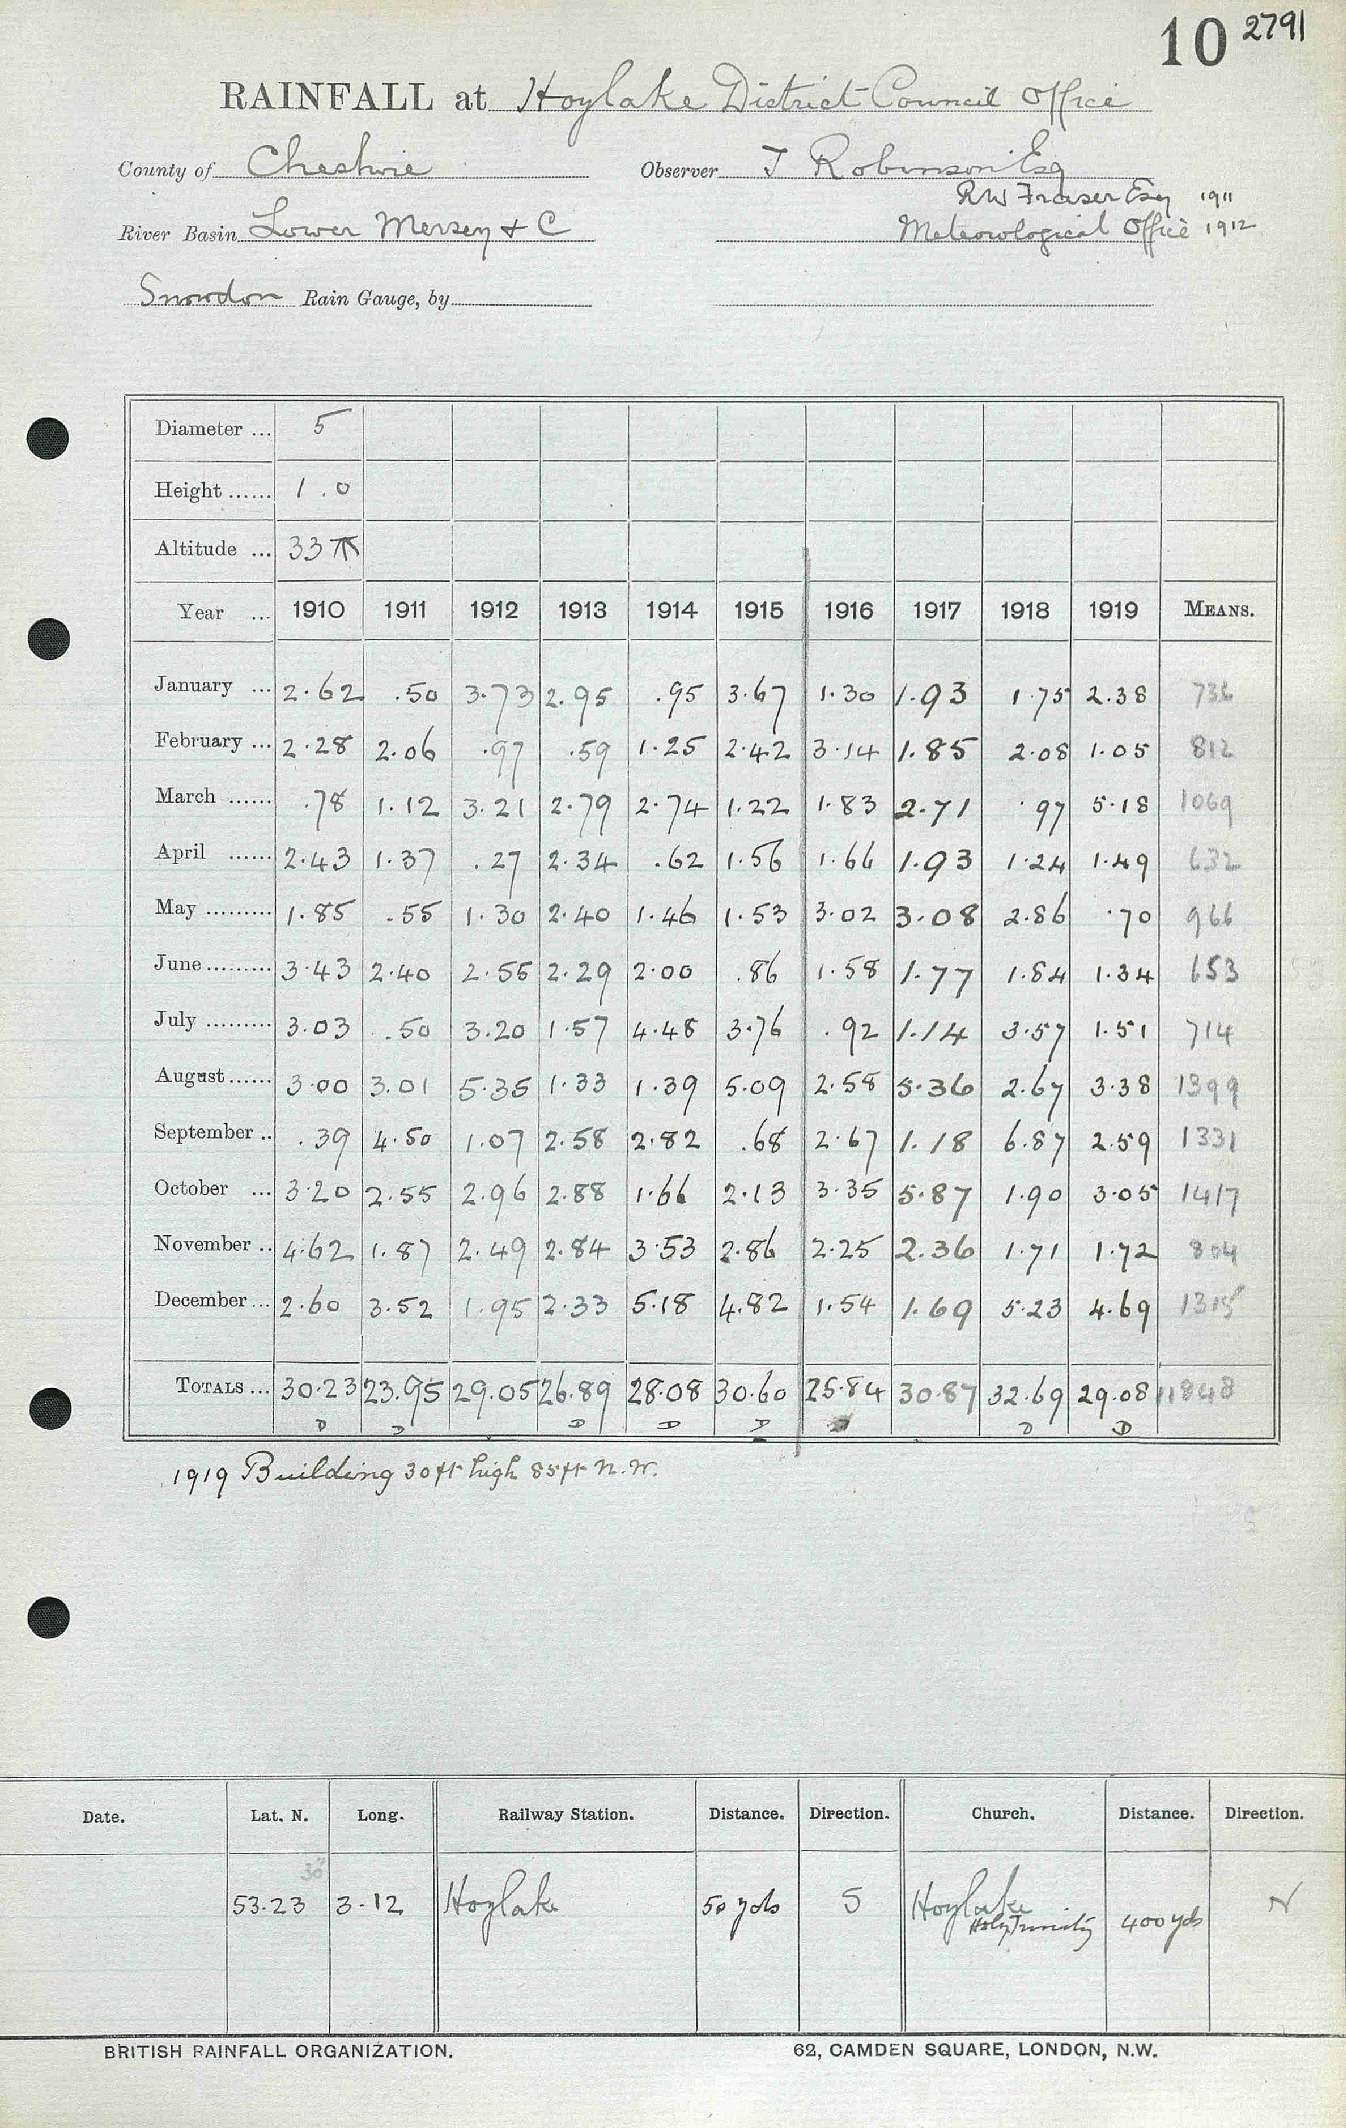 10 2791
RAINFALL at Hoylake District Council Office
County of Cheshire Observer J Robinson Esq
RW Fraser Esq 1911
River Basin Lower Mersey & C Meteorological Office 1912
Snowdon Rain Gauge, by
Diameter ... 5
Height ...... 1.0
Altitude ... 33
Year ... 1910 1911 1912 1913 1914 1915 1916 1917 1918 1919 MEANS.
January ... 2.62 .50 3.73 2.95 .95 3.67 1.30 1.93 1.75 2.38 736
February ... 2.28 2.06 .97 .59 1.25 2.42 3.14 1.85 2.08 1.05 812
March ...... .78 1.12 3.21 2.79 2.74 1.22 1.83 2.71 .97 5.18 1069
April ...... 2.43 1.37 .27 2.34 .62 1.56 1.66 1.93 1.24 1.49 632
May ......... 1.85 .55 1.30 2.40 1.46 1.53 3.02 3.08 2.86 .70 966
June ......... 3.43 2.40 2.55 2.29 2.00 .86 1.58 1.77 1.84 1.34 653
July ......... 3.03 .50 3.20 1.57 4.48 3.76 .92 1.14 3.57 1.51 714
August ...... 3.00 3.01 5.35 1.33 1.39 5.09 2.58 5.36 2.67 3.38 1399
September .. .39 4.50 1.07 2.58 2.82 .68 2.67 1.18 6.87 2.59 1331
October ... 3.20 2.55 2.96 2.88 1.66 2.13 3.35 5.87 1.90 3.05 1417
November .. 4.62 1.87 2.49 2.84 3.53 2.86 2.25 2.36 1.71 1.72 804
December ... 2.60 3.52 1.95 2.33 5.18 4.82 1.54 1.69 5.23 4.69 1315
TOTALS ... 30.23 23.95 29.05 26.89 28.08 30.60 25.84 30.87 32.69 29.08 11848
D D D D D D D
1919 Building 30ft high 85ft N.W.
Date. Lat. N. Long. Railway Station. Distance. Direction. Church. Distance. Direction.
30"
53.23 3.12 Hoylake 50 yds S Hoylake 400 yds N
Holy Trinity
BRITISH RAINFALL ORGANIZATION. 62, CAMDEN SQUARE, LONDON, N.W.